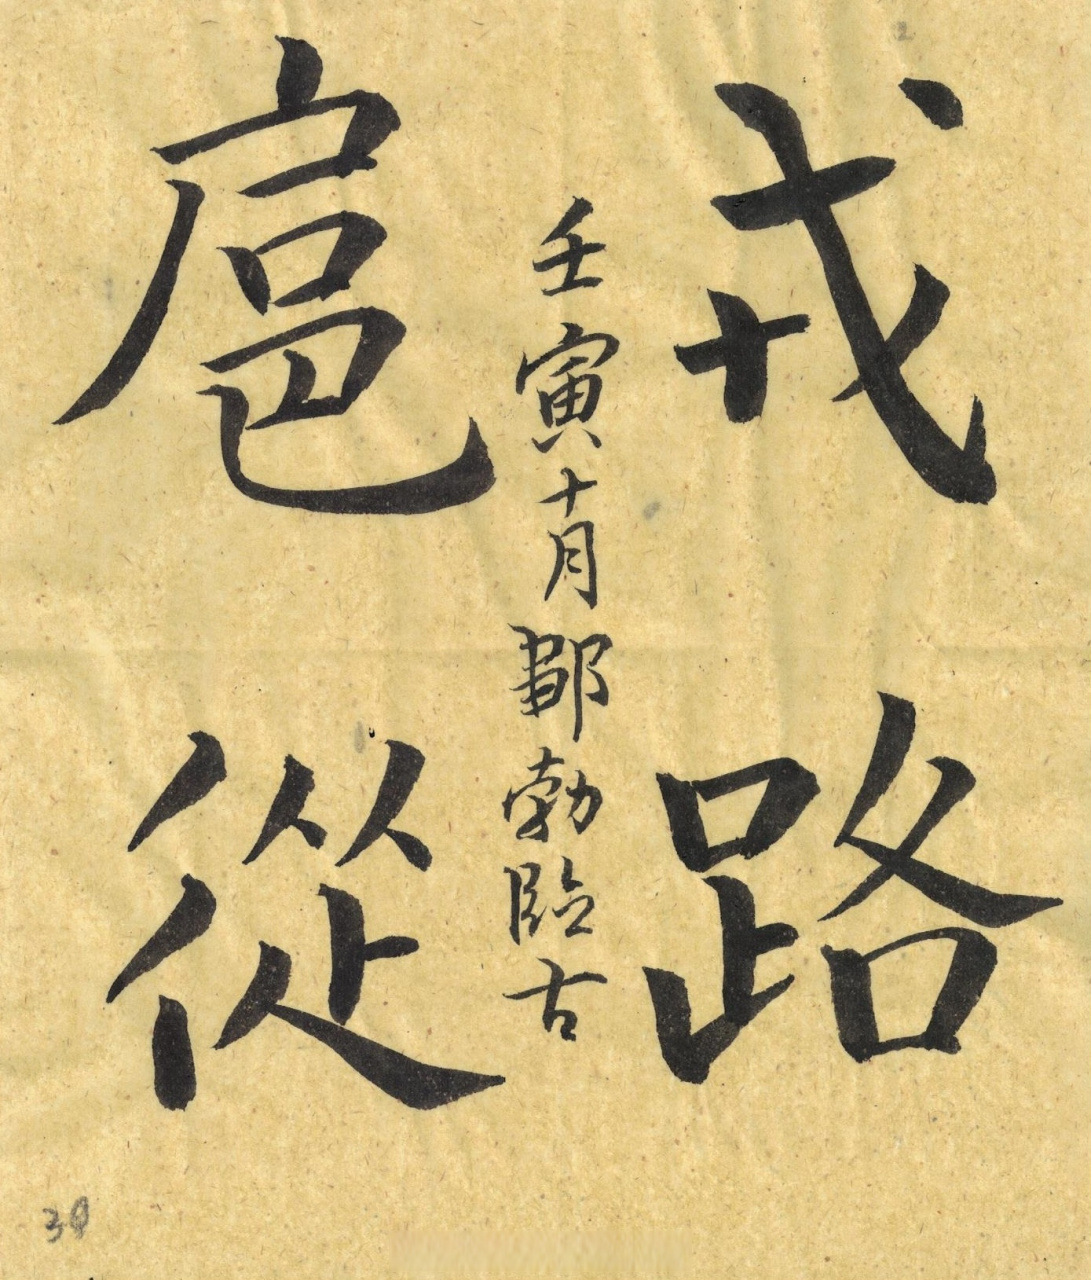 戎路
壬寅十月勃臨古
扈從
30